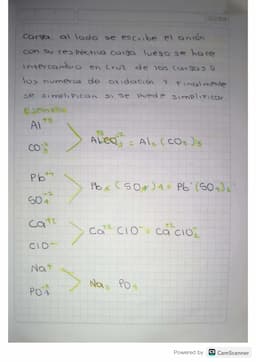 carga, al lado se escribe el anión
con su respectiva carga luego se hace
intercambio en cruz de los cargas o
los numeros de oxidación y finalmente
se simplifican si se puede simplificar
Ejemplo
Al⁺³
CO₃⁻²
Al CO₃⁻² = Al₂ (CO₃)₃
Pb⁺⁴
SO₄⁻²
Pb₂ (SO₄)₄ = Pb (SO₄)₂
Ca⁺²
ClO⁻
Ca⁺² ClO⁻ = Ca ClO₂
Na⁺
PO₄⁻³
Na₃ PO₄
Powered by CS CamScanner